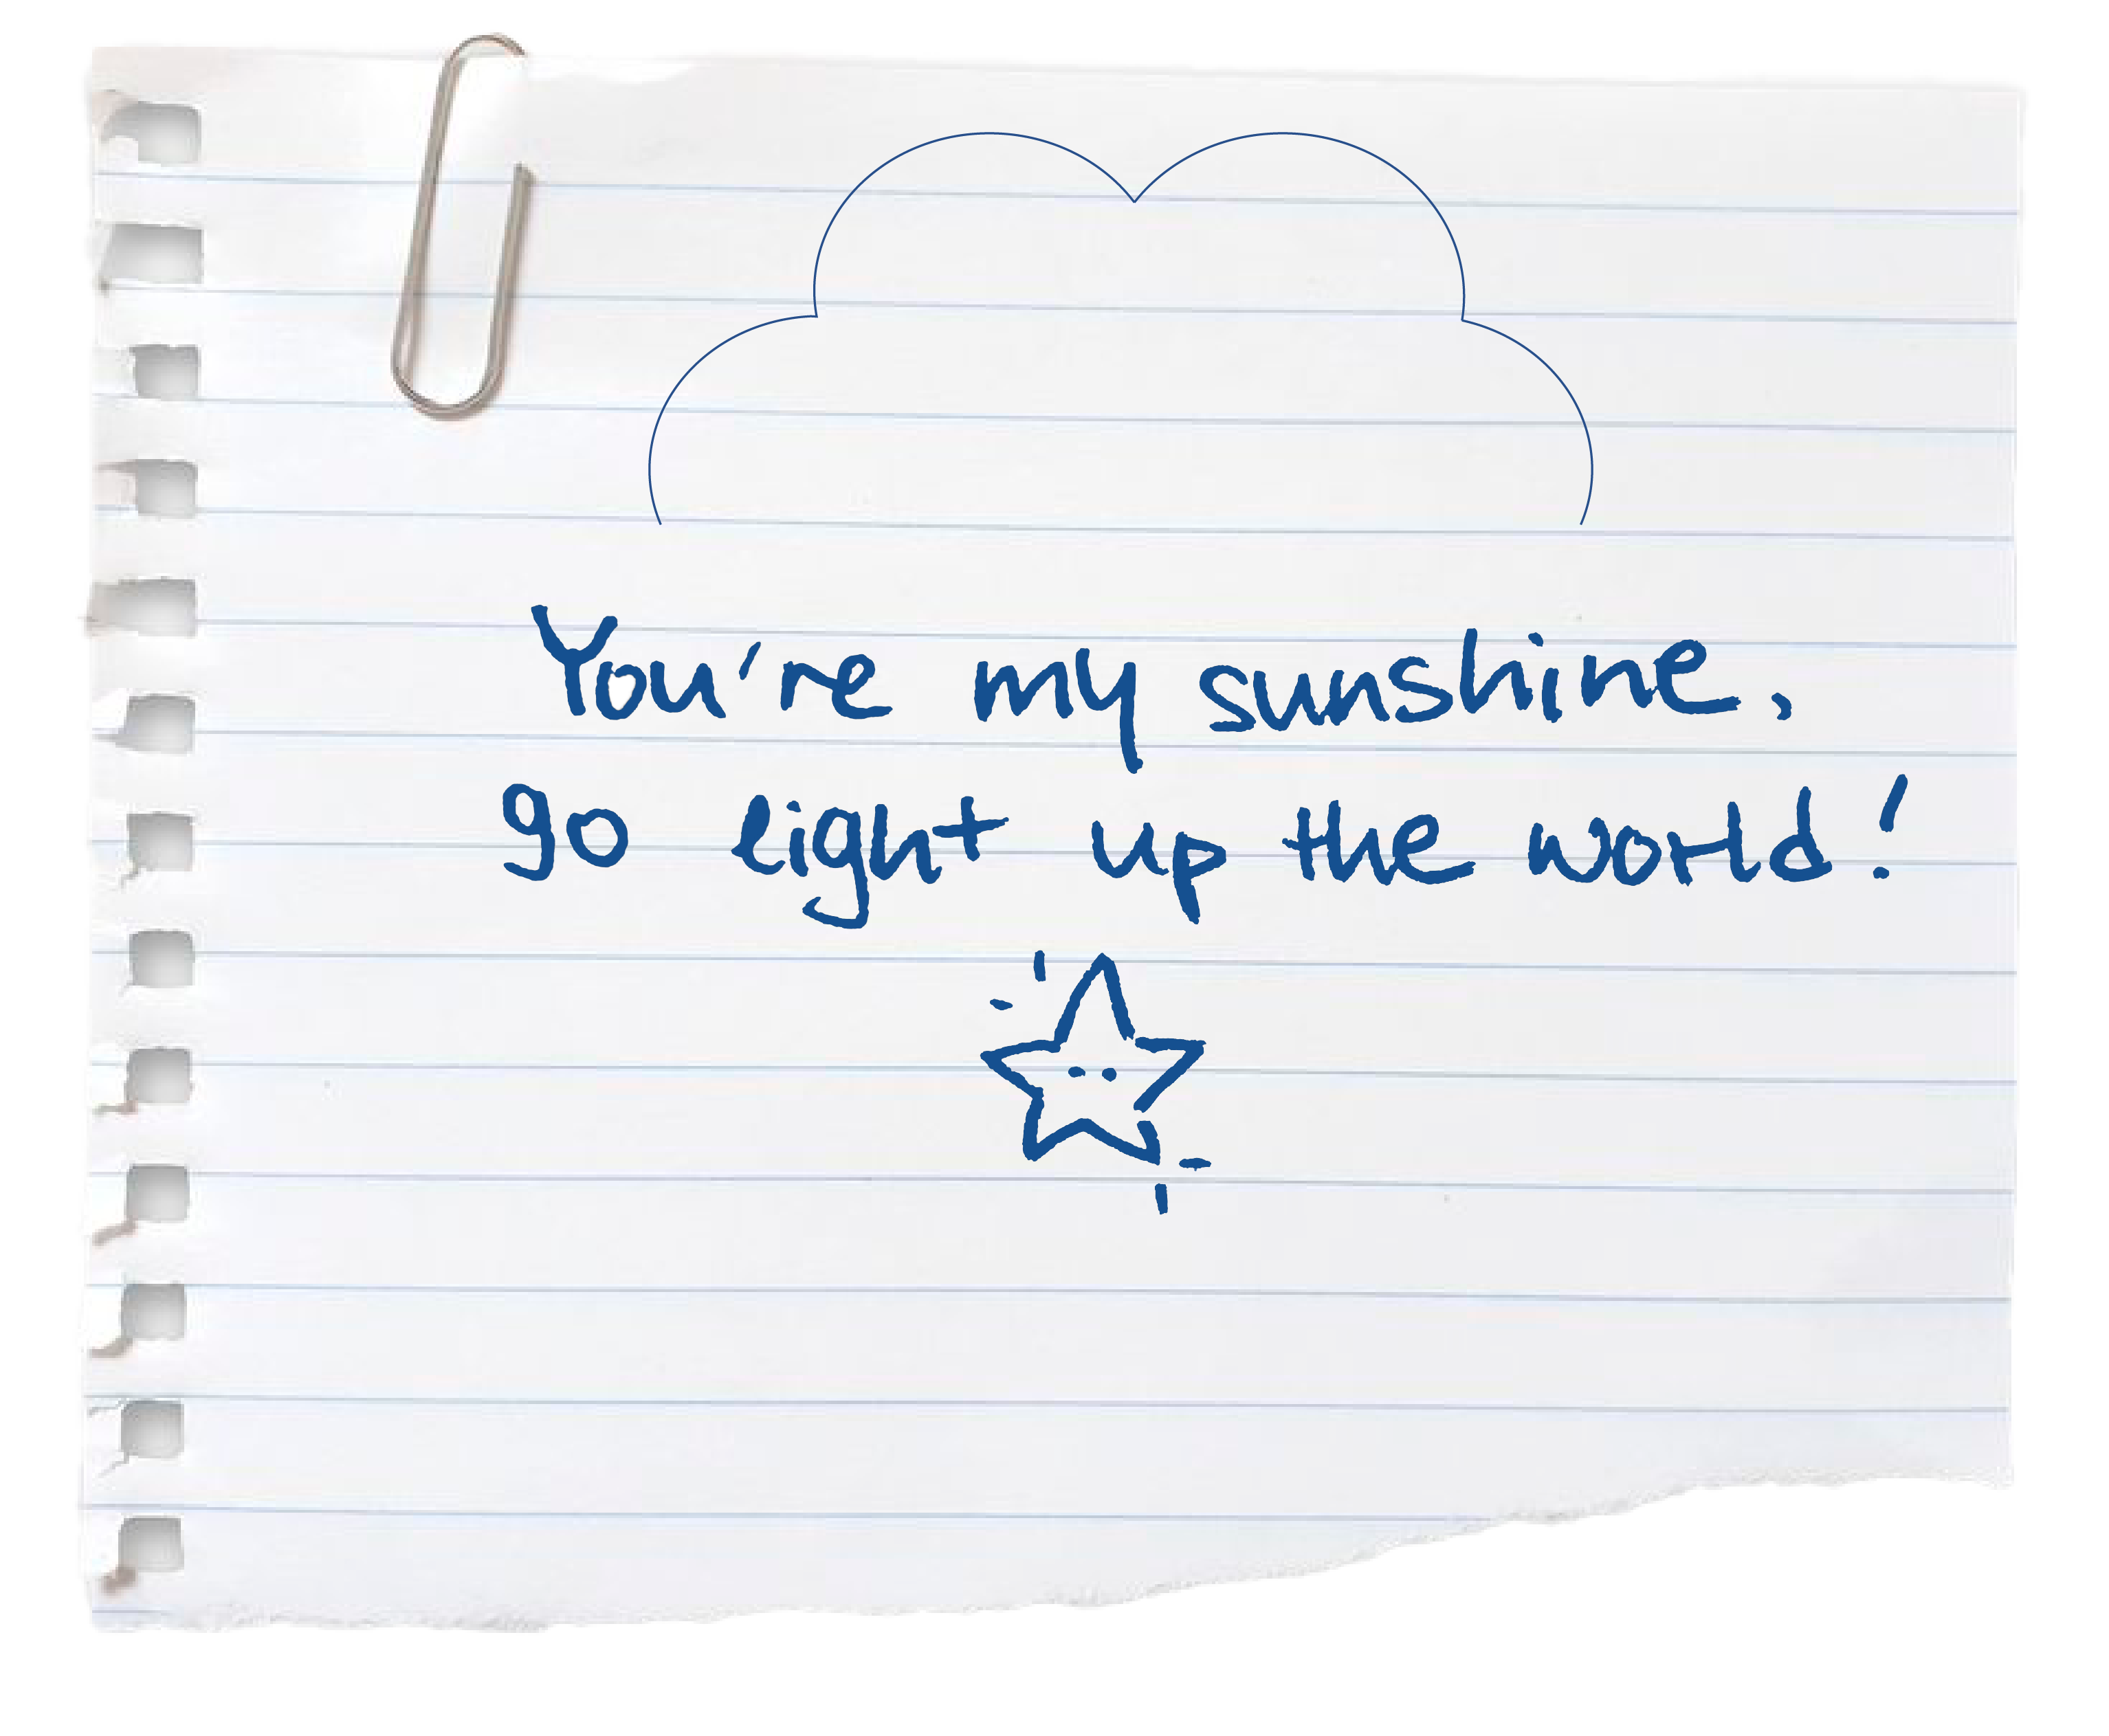 You're my sunshine,
go light up the world!